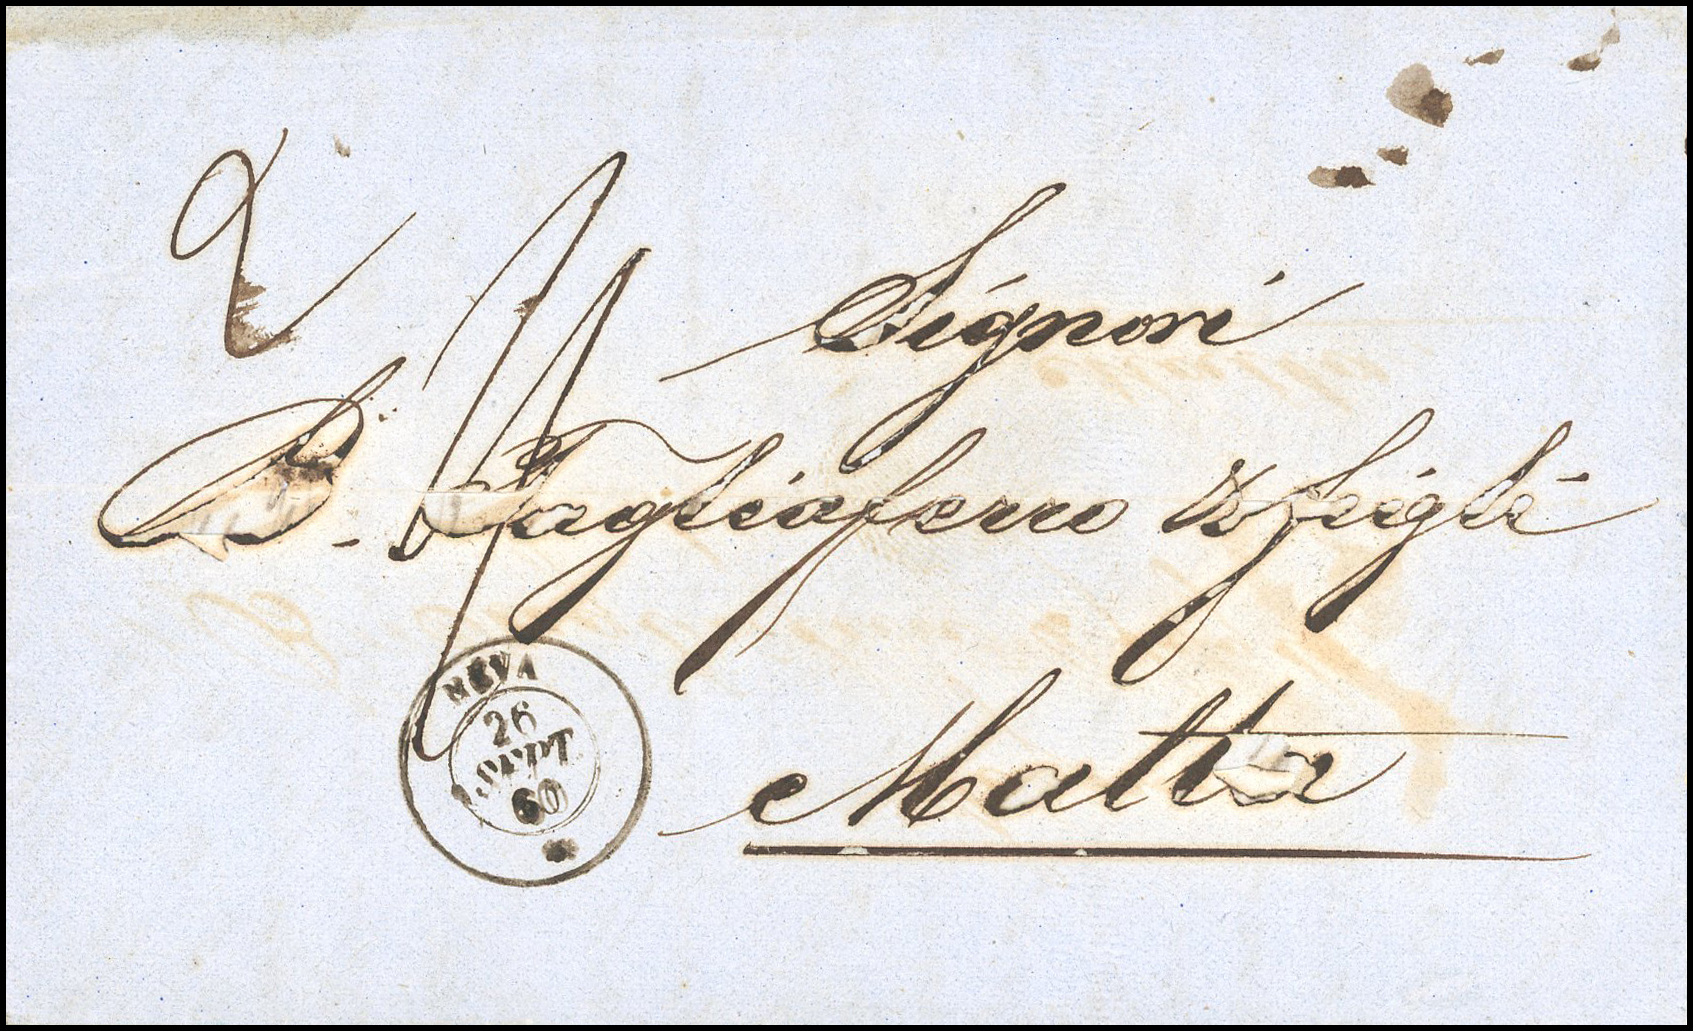 2
Signori
B. Tagliaferro & figli
Malta
26
SEPT
60